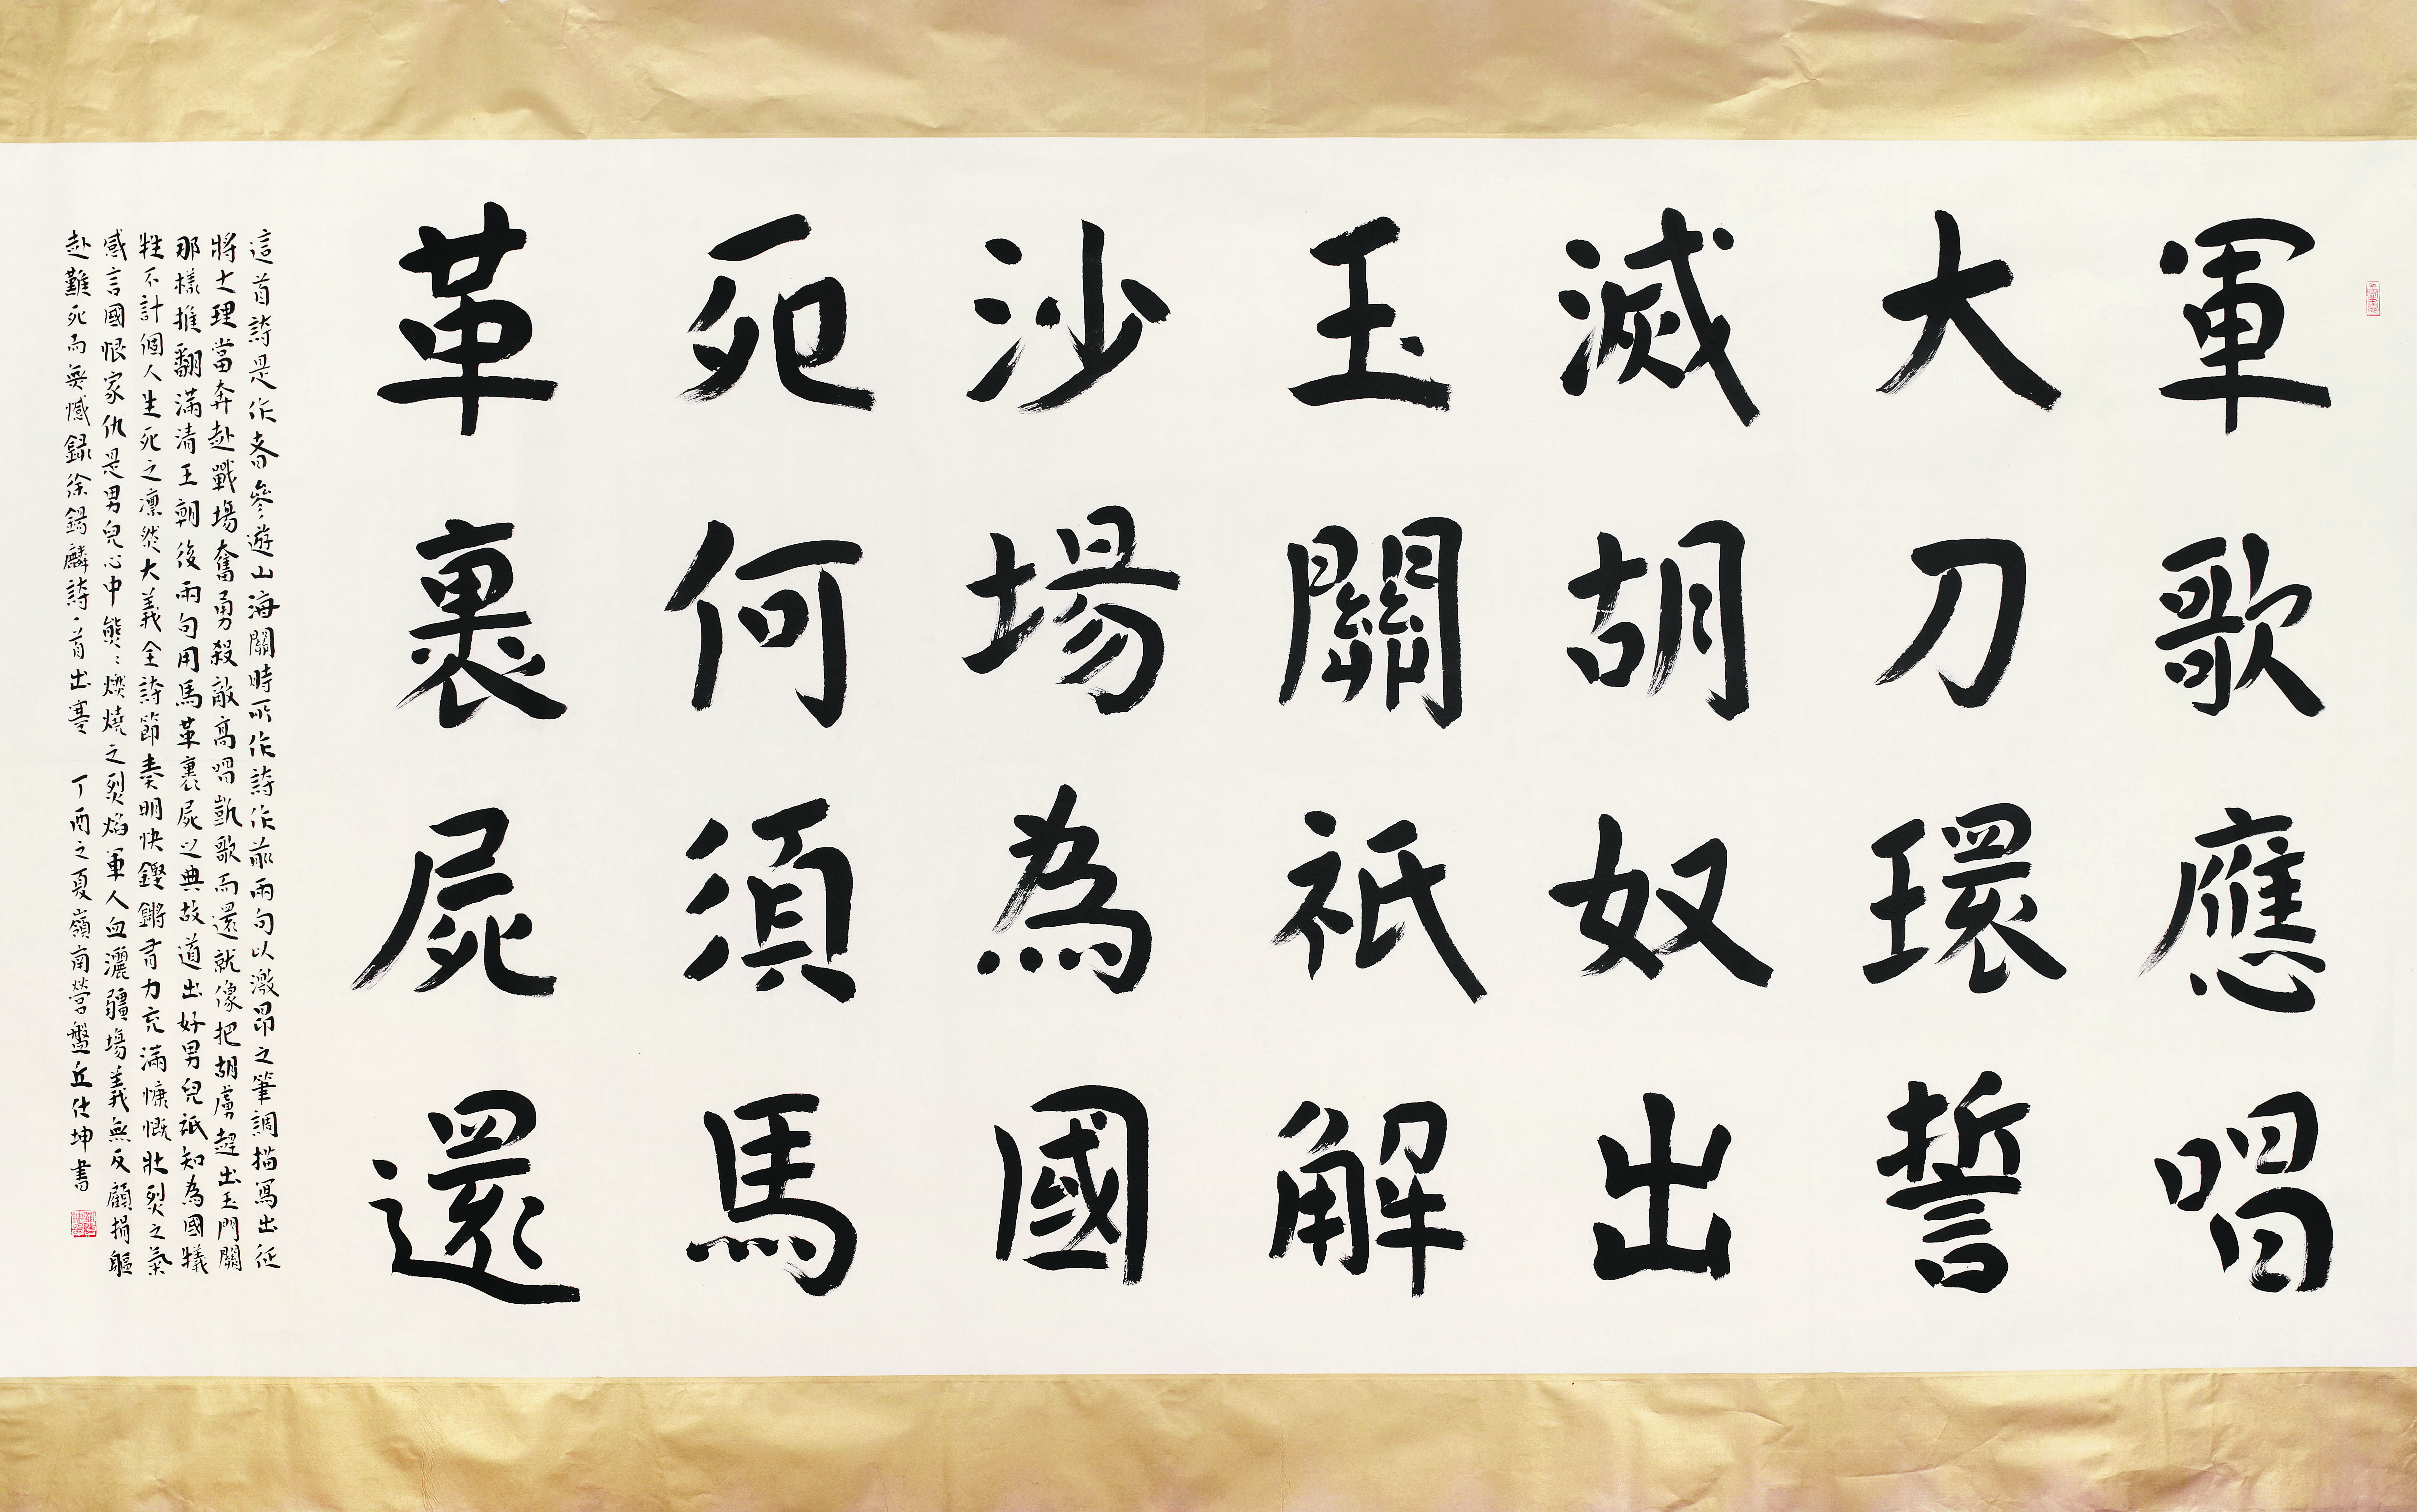 軍歌應唱
大刀環誓
滅胡奴出
玉關祇解
沙場為國
死何須馬
革裹屍還
這首詩是作者參遊山海關時所作詩作前兩句以激昂之筆調描寫出征
將士理當奔赴戰場奮勇殺敵高唱凱歌而還就像把胡虜趕出玉門關
那樣推翻滿清王朝後兩句用馬革裹屍之典故道出好男兒祇知為國犧
牲不計個人生死之凜然大義全詩節奏明快鏗鏘有力充滿慷慨壯烈之氣
感言國恨家仇是男兒心中熊〻燃燒之烈焰軍人血灑疆場義無反顧捐軀
赴難死而無憾録徐錫麟詩一首出塞 丁酉之夏嶺南營盤丘仕坤書